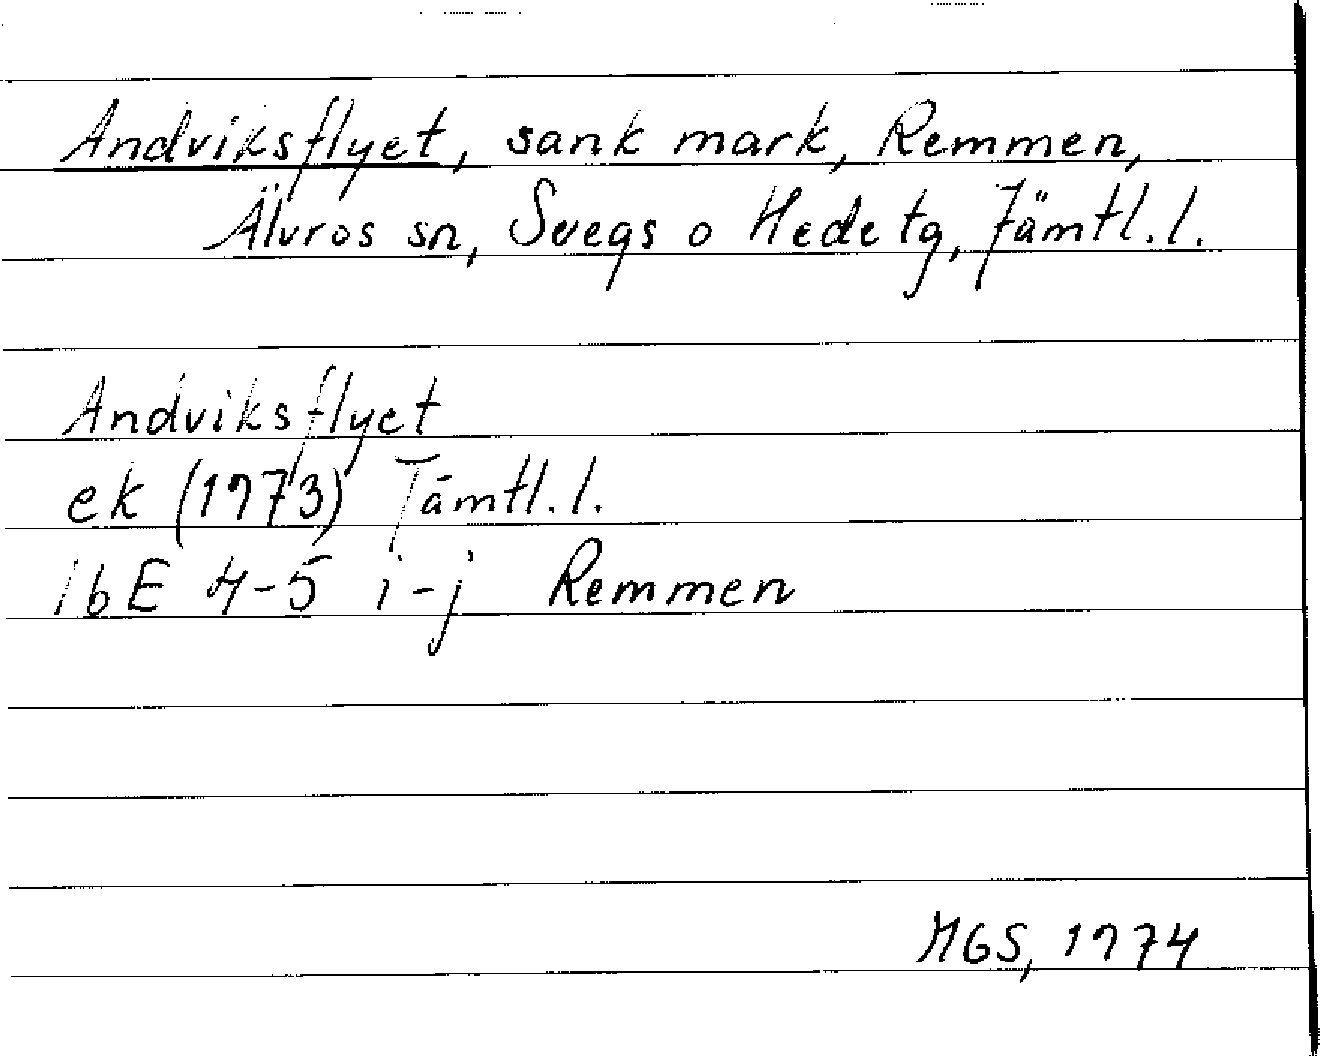 Andviksflyet, sank mark, Remmen,
Älvros sn, Svegs o Hede tg, Jämtl. l.
Andviksflyet
ek (1973) Jämtl. l.
16E 4-5 i-j Remmen
MGS, 1974